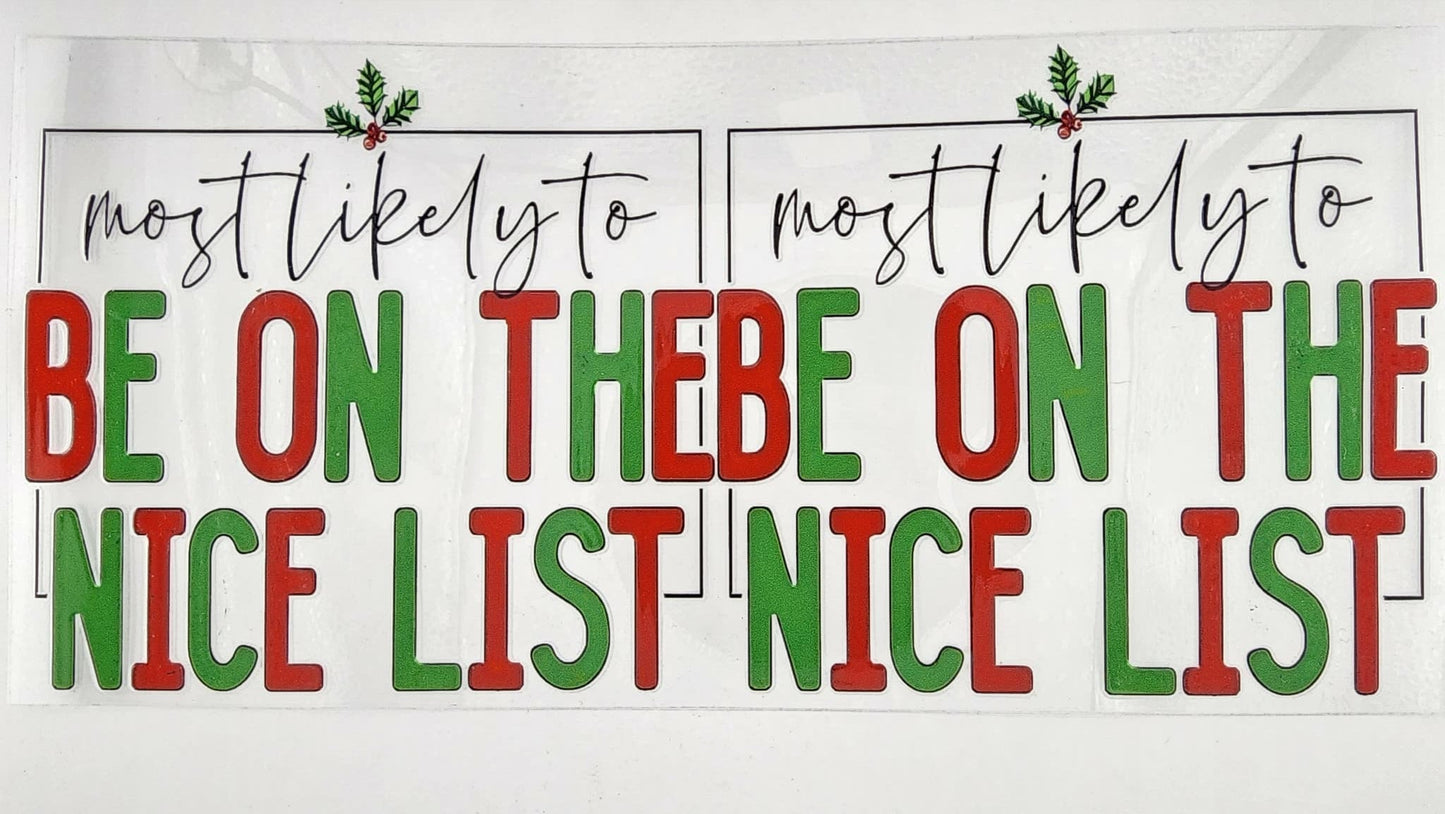 most likely to
BE ON THE
NICE LIST
most likely to
BE ON THE
NICE LIST